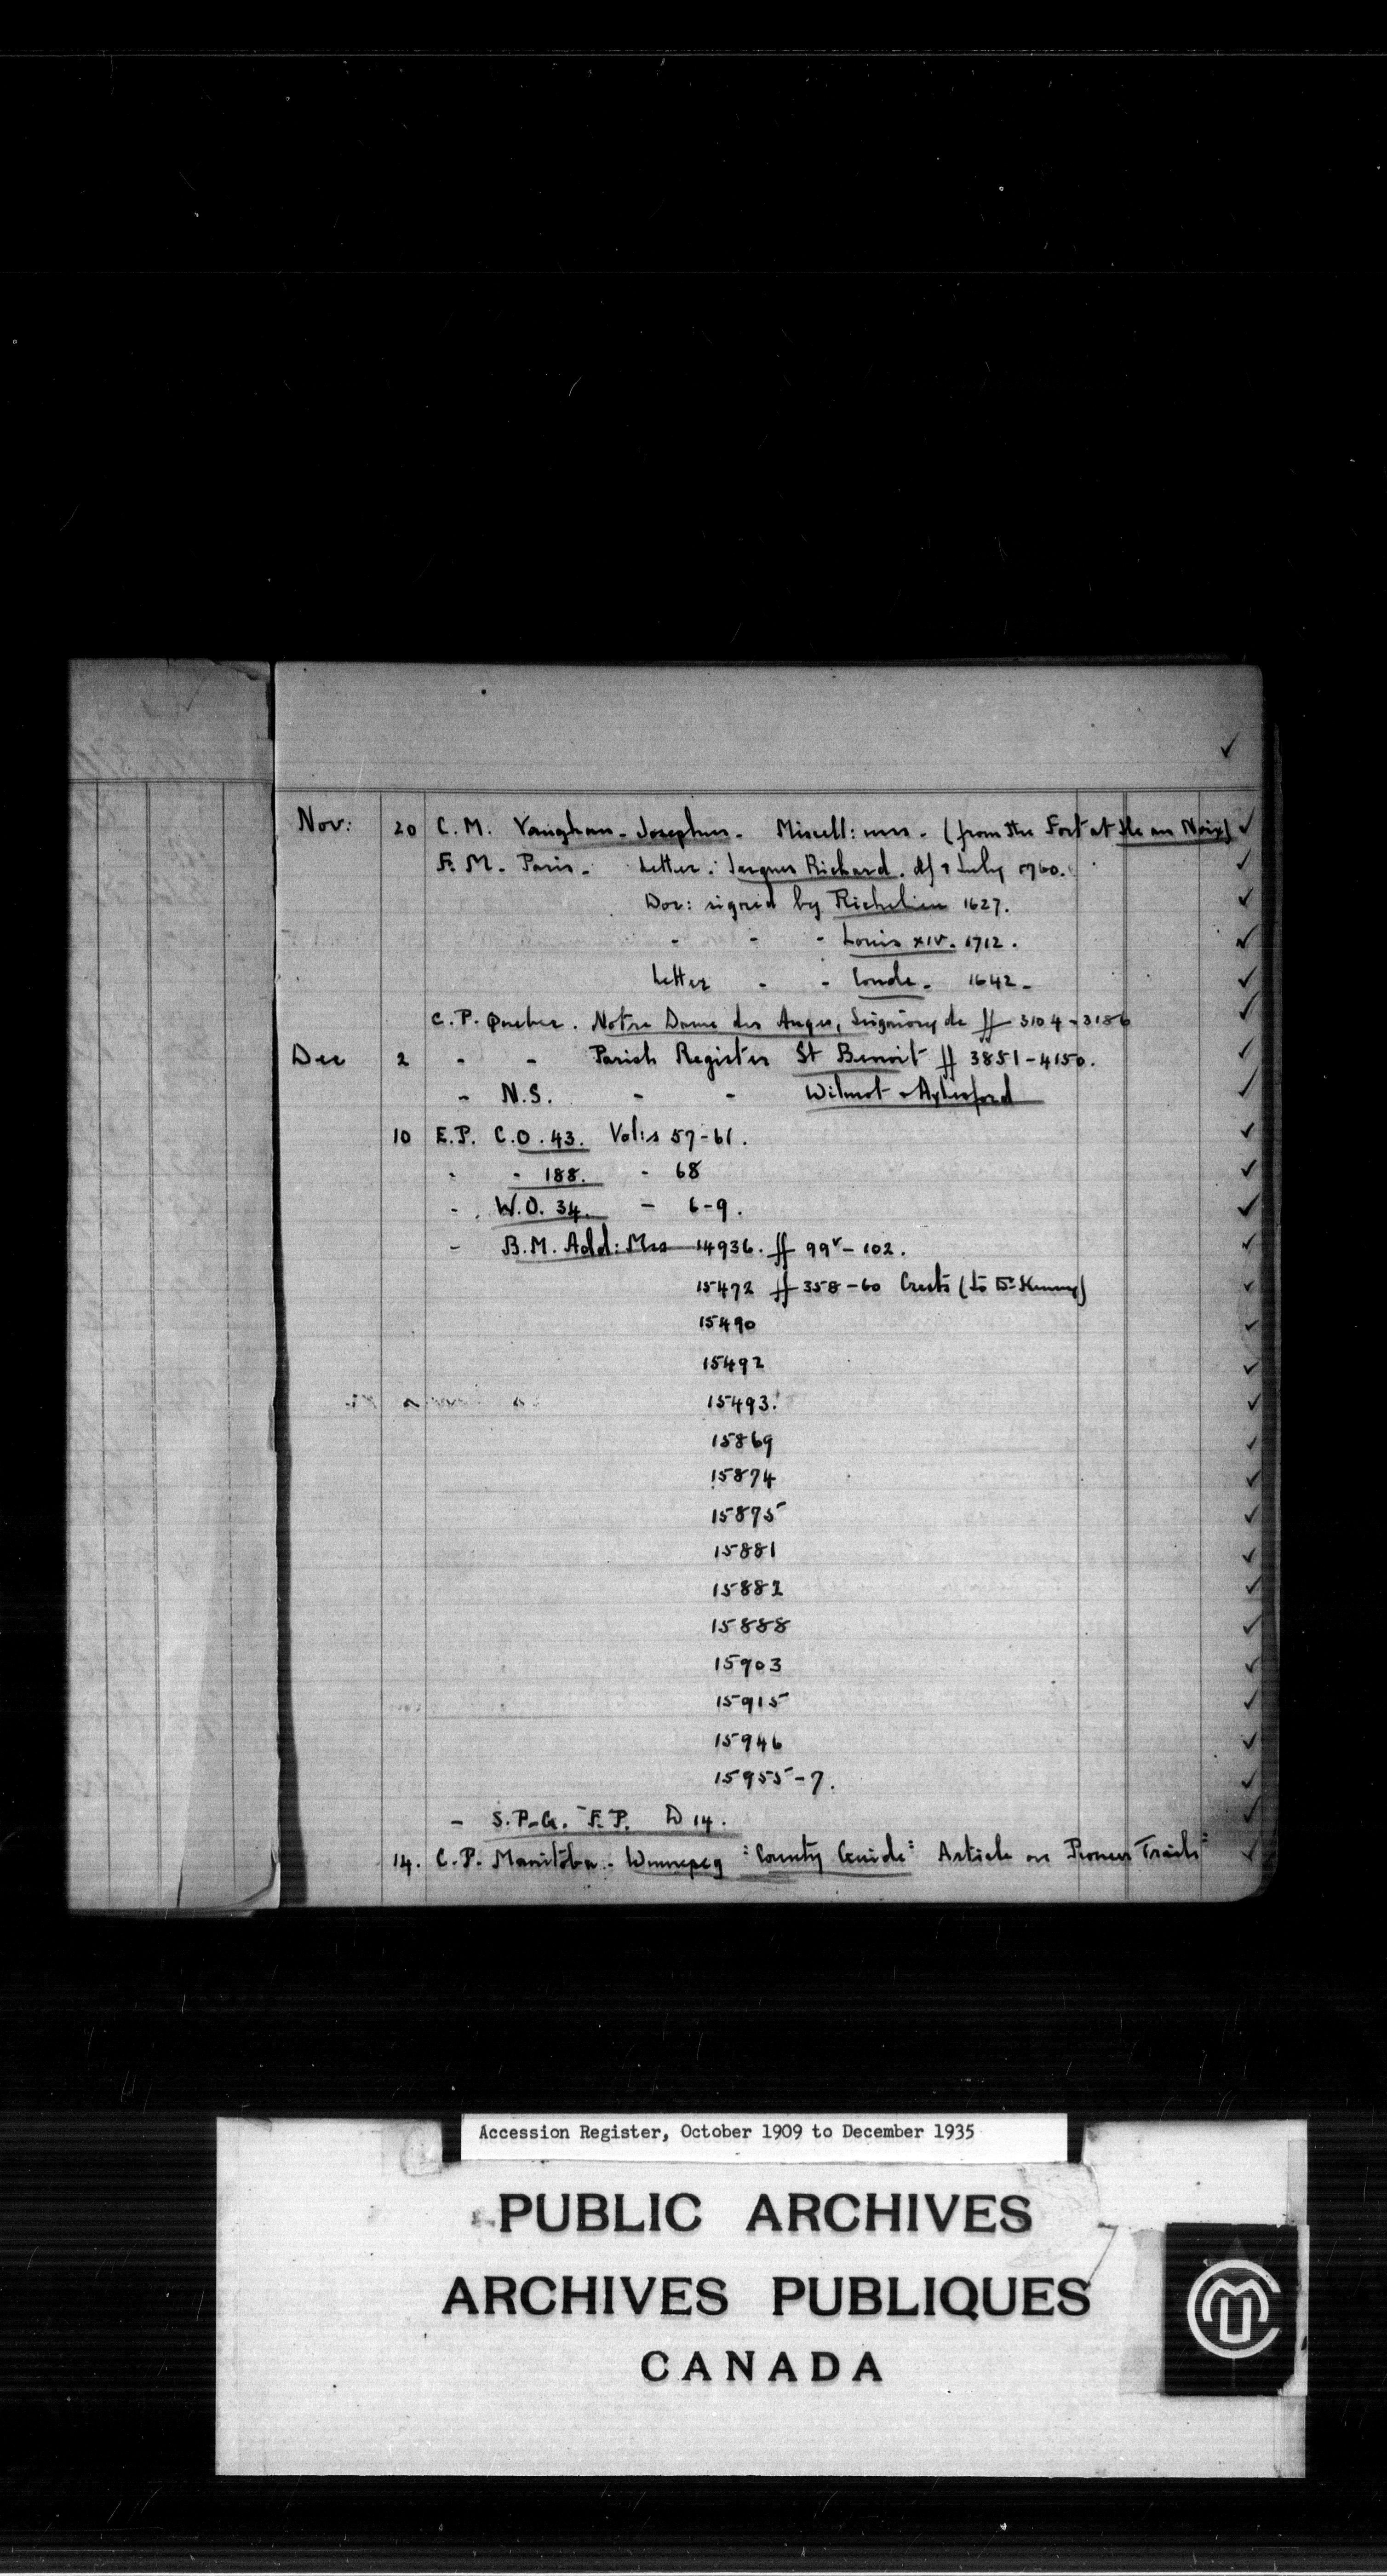 Nov: 20 C. M. Vaughan - Josephus - Miscell: mss - (from the Fort at Ile au Noix) ✓
F. M. Paris - Letter: Jacques Richard. d/ 2 July 1760. ✓
Doc: signed by Richelieu 1627. ✓
- - - Louis XIV. 1712. ✓
Letter - - Conde - 1642 - ✓
C. P. Quebec. Notre Dame des Anges, Seigniory de ff 3104-3186 ✓
Dec 2 - - Parish Register St Benoit ff 3851-4150. ✓
- N.S. - - Wilmot - Aylesford ✓
10 E.P. C.O. 43. Vols 57-61. ✓
- - 188. - 68 ✓
- W.O. 34. - 6-9. ✓
- B.M. Add: Mss 14936. ff 99v-102. ✓
15472 ff 358-60 Crests (to Dr Kenney) ✓
15490 ✓
15492 ✓
15493. ✓
15869 ✓
15874 ✓
15875 ✓
15881 ✓
15882 ✓
15888 ✓
15903 ✓
15915 ✓
15946 ✓
15955-7. ✓
- S.P.G. F.P. D 14. ✓
14. C.P. Manitoba - Winnipeg "County Guide" Article on Pioneer Trails" ✓
Accession Register, October 1909 to December 1935
PUBLIC ARCHIVES
ARCHIVES PUBLIQUES
CANADA